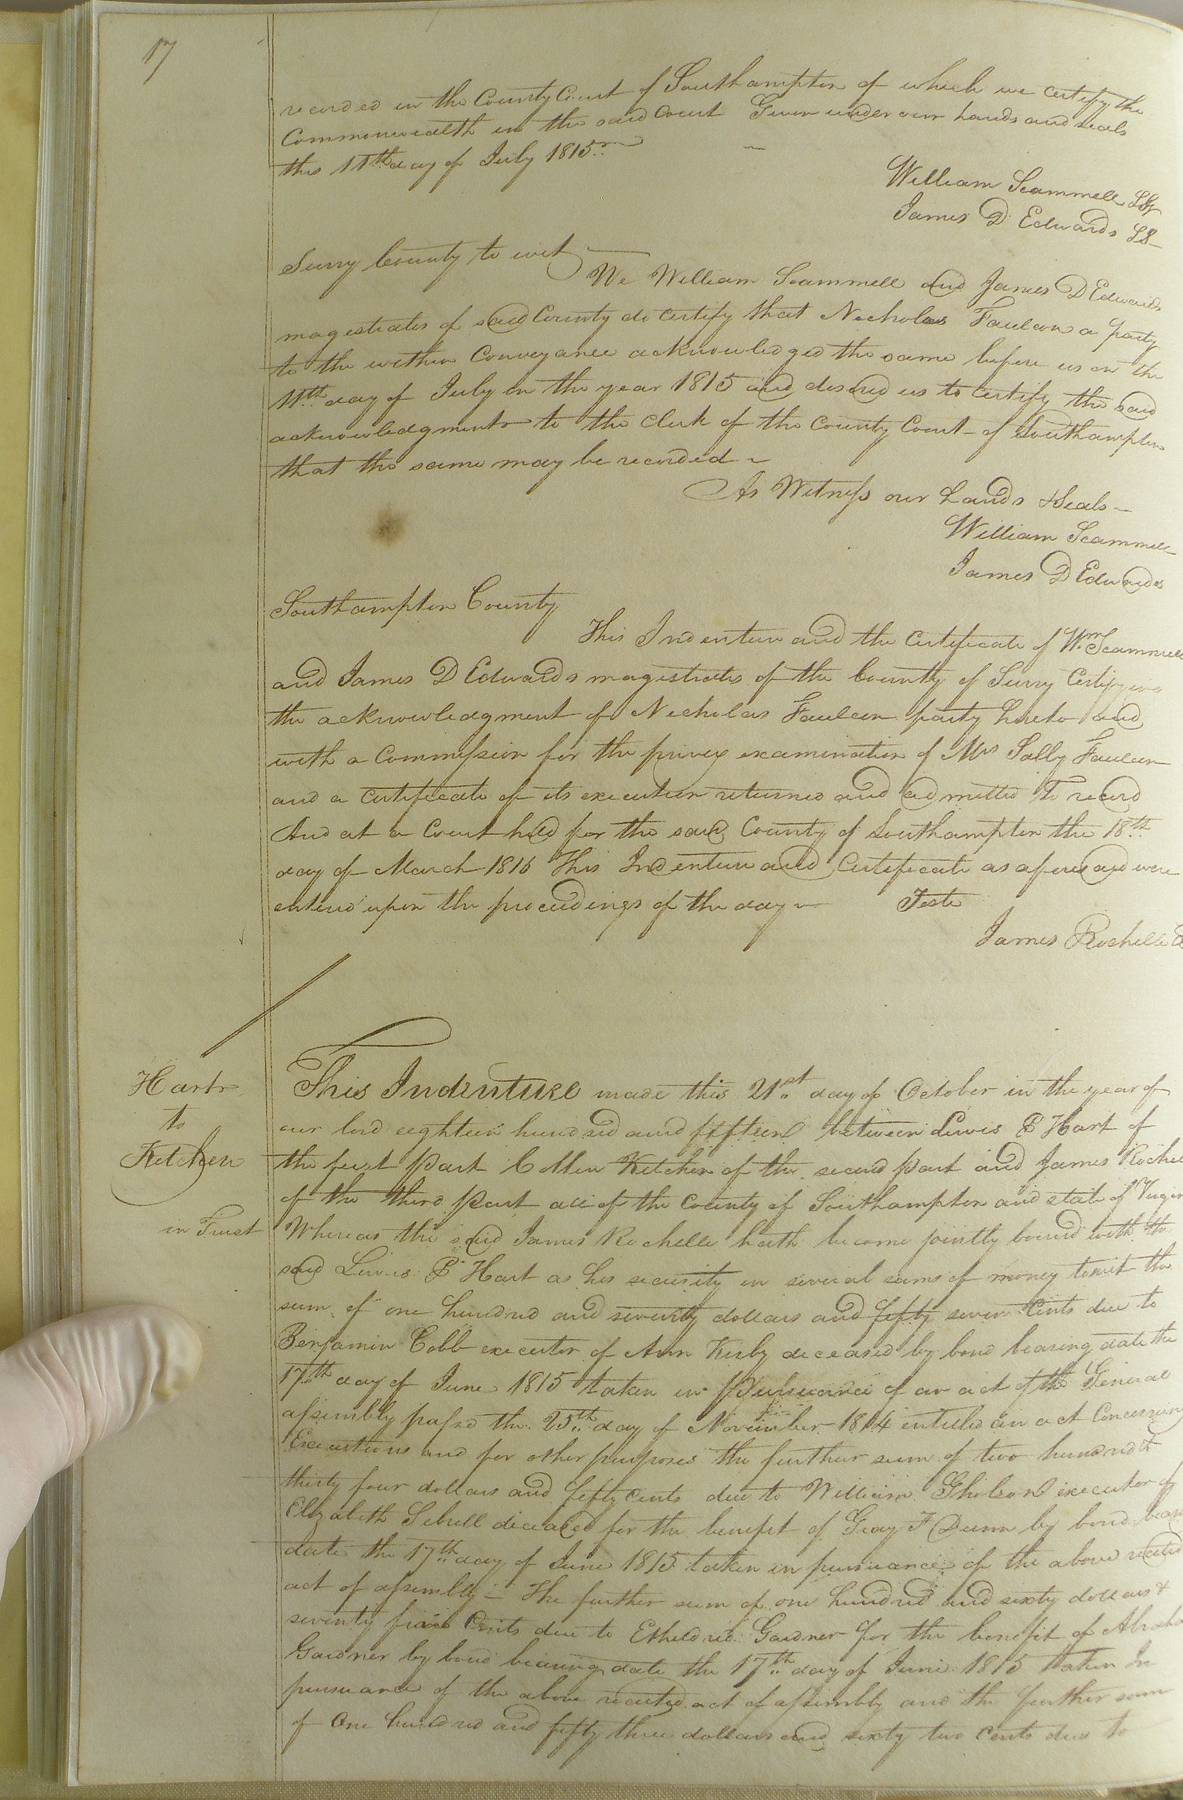 17
recorded in the County Court of Southampton of which we certify the
Commonwealth in the said Court Given under our hands and seals
this 11th day of July 1815
William Scammell LS
James D Edwards LS
Surry County to wit
We William Scammell and James D Edwards
magestrates of said County do certify that Nicholas Faulcon a party
to the within Conveyance acknowledged the same before us on the
11th day of July in the year 1815 and desired us to certify the said
acknowledgments to the Clerk of the County Court of Southampton
that the same may be recorded
As Witness our hands & Seals
William Scammell
James D Edwards
Southampton County
This Indenture and the certificate of Wm Scammell
and James D Edwards magestrates of the County of Surry Certifying
the acknowledgment of Nicholas Faulcon party hereto and
with a Commission for the privey examination of Mrs Sally Faulcon
and a Certificate of its execution returned and admitted To record
And at a Court held for the said County of Southampton the 18th
day of March 1816 This Indenture and Certificate as aforesaid were
entered upon the proceedings of the day
Teste
James Rochelle
Hart
to
Kitchen
in Trust
This Indenture made this 21st day of October in the year of
our lord eighteen hundred and fifteen between Lewis B Hart of
the first part Collin Kitchen of the second part and James Rochel
of the third part all of the County of Southampton and state of Virgin
Whereas the said James Rochelle hath become jointly bound with the
said Lewis B Hart as his security in several sums of money towit the
sum of one hundred and seventy dollars and fifty seven Cents due to
Benjamin Cobb executor of Ann Kirby deceased by bond bearing date the
17th day of June 1815 taken in pursuance of an act of the General
assembly passed the 25th day of November 1814 intitled an act Concerning
Executions and for other purposes the further sum of two hundred &
thirty four dollars and fifty cents due to William Gholson executor of
Elizabeth Sebrell deceased for the benefit of Gray F Dunn by bond bear
date the 17th day of June 1815 taken in pursuance of the above recited
act of assembly - The further sum of one hundred and sixty dollars &
seventy five Cents due to Etheldred Gardner for the benefit of Abraha
Gardner by bond bearing date the 17th day of June 1815 taken In
pursuance of the above recited act of assembly and the further sum
of One hundred and fifty three dollars and sixty two cents due to